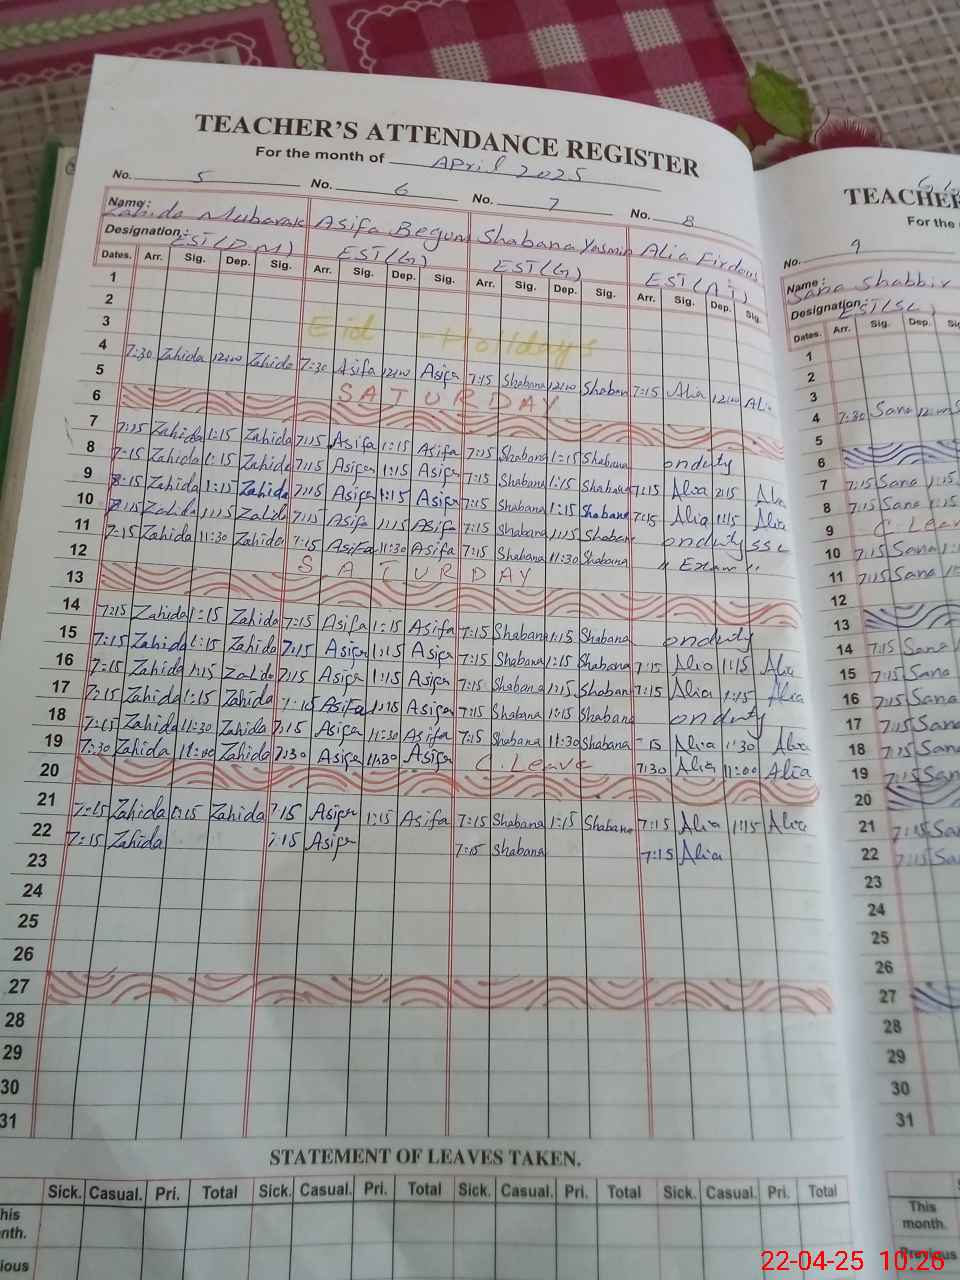 TEACHER'S ATTENDANCE REGISTER
For the month of April 2025
No. 5 No. 6 No. 7 No. 8
Name: Zahida Mubarak Asifa Begum Shabana Yasmin Alia Firdous
Designation: EST(D.M) EST(G) EST(G)
Dates. Arr. Sig. Dep. Sig. Arr. Sig. Dep. Sig. Arr. Sig. Dep. Sig. Arr. Sig. Dep. Sig.
1
2
3 Eid - Holidays
4 7:30 Zahida 12:00 Zahida 7:30 Asifa 12:00 Asifa 7:15 Shabana 12:00 Shaban 7:15 Alia 12:00 Ali
5 SATURDAY
6
7 7:15 Zahida 1:15 Zahida 7:15 Asifa 1:15 Asifa 7:15 Shabana 1:15 Shabana onduty
8 7:15 Zahida 1:15 Zahida 7:15 Asifa 1:15 Asifa 7:15 Shabana 1:15 Shabana 7:15 Alia Alia
9 7:15 Zahida 1:15 Zahida 7:15 Asifa 1:15 Asifa 7:15 Shabana 1:15 Shabana 7:15 Alia 1:15 Alia
10 7:15 Zahida 1:15 Zahida 7:15 Asifa 1:15 Asifa 7:15 Shabana 1:15 Shaban onduty SSC
11 7:15 Zahida 11:30 Zahida 7:15 Asifa 11:30 Asifa 7:15 Shabana 11:30 Shabana " Exam "
12 SATURDAY
13
14 7:15 Zahida 1:15 Zahida 7:15 Asifa 1:15 Asifa 7:15 Shabana 1:15 Shabana onduty
15 7:15 Zahida 1:15 Zahida 7:15 Asifa 1:15 Asifa 7:15 Shabana 1:15 Shabana 7:15 Alia 1:15 Alia
16 7:15 Zahida 1:15 Zahida 7:15 Asifa 1:15 Asifa 7:15 Shabana 1:15 Shaban 7:15 Alia 1:15 Alia
17 7:15 Zahida 1:15 Zahida 7:15 Asifa 1:15 Asifa 7:15 Shabana 1:15 Shabana onduty
18 7:15 Zahida 11:30 Zahida 7:15 Asifa 11:30 Asifa 7:15 Shabana 11:30 Shabana Alia Alia
19 7:30 Zahida 11:00 Zahida 7:30 Asifa 11:30 Asifa C. Leave 7:30 Alia 11:00 Alia
20
21 7:15 Zahida 1:15 Zahida 7:15 Asifa 1:15 Asifa 7:15 Shabana 1:15 Shabana 7:15 Alia 1:15 Alia
22 7:15 Zahida 7:15 Asifa 7:15 Shabana 7:15 Alia
23
24
25
26
27
28
29
30
31
STATEMENT OF LEAVES TAKEN.
Sick. Casual. Pri. Total Sick. Casual. Pri. Total Sick. Casual. Pri. Total Sick. Casual. Pri. Total
his
nth.
ious
TEACHER
For the
No. 9
Name: Sana Shabbir
Designation: EST(SC)
Dates. Arr. Sig. Dep. S
1
2
3
4 7:30 Sana
5
6
7 7:15 Sana 1:15
8 7:15 Sana 1:15
9 C. Leav
10 7:15 Sana
11 7:15 Sana
12
13
14 7:15 Sana
15 7:15 Sana
16 7:15 Sana
17 7:15 Sana
18 7:15 Sana
19 7:15 San
20
21 7:15 Sa
22 7:15 Sa
23
24
25
26
27
28
29
30
31
This
month.
Previous
22-04-25 10:26